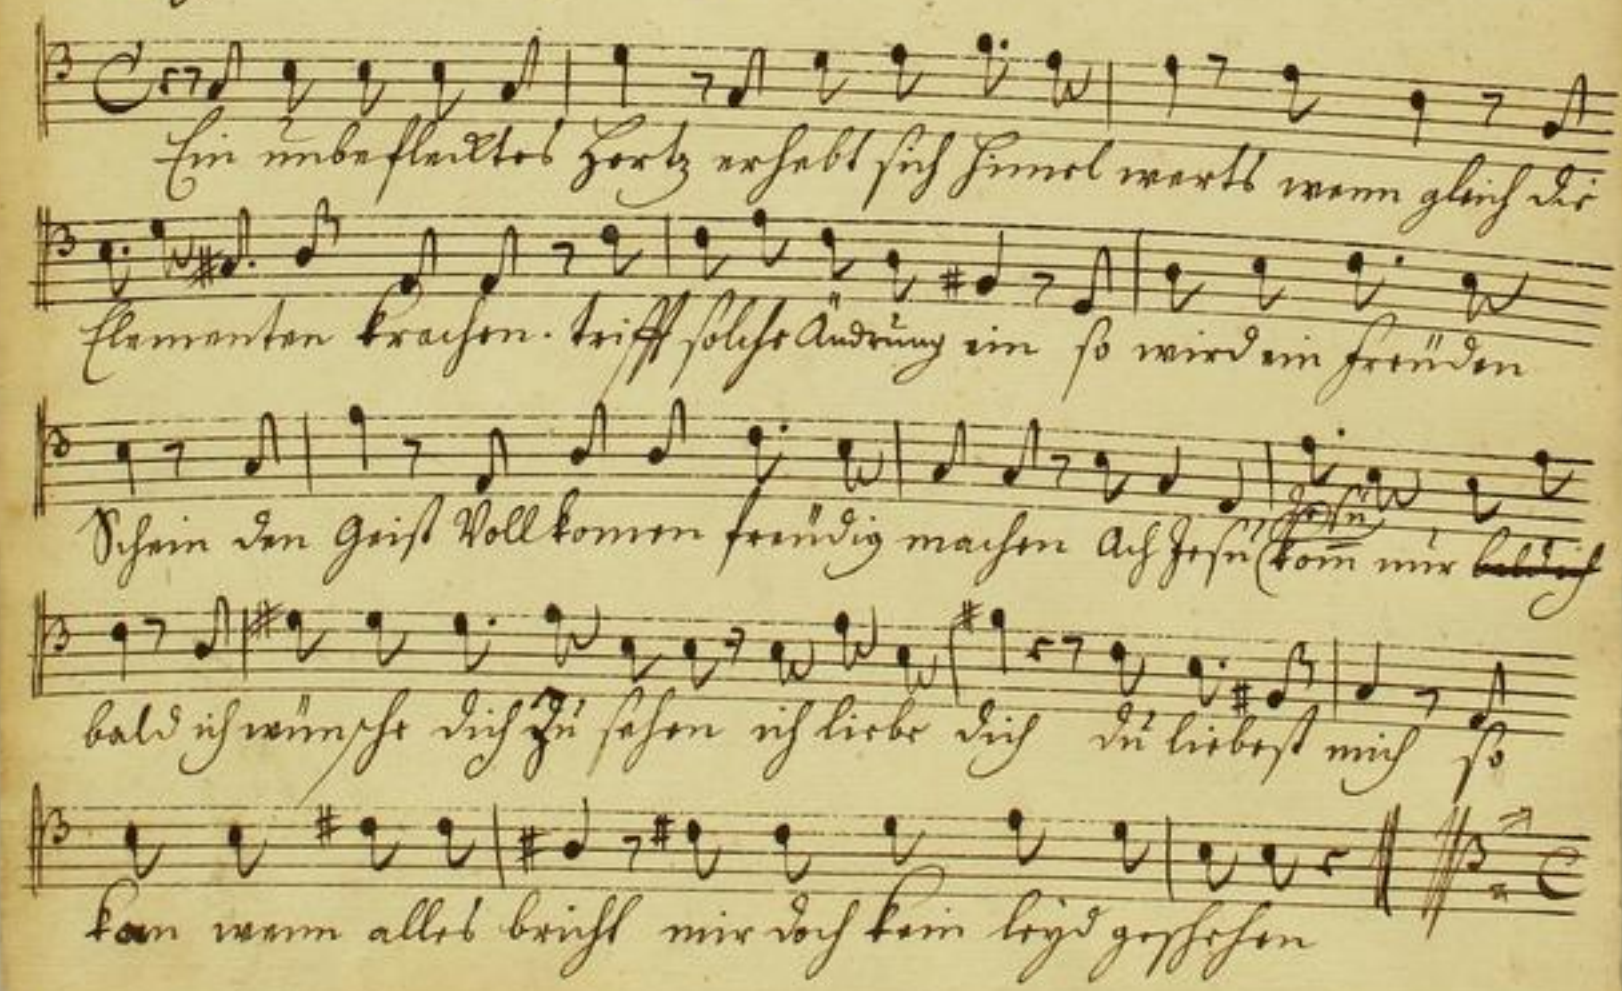 Ein unbeflecktes Hertz erhebt sich Himel werts wenn gleich die
Elementen krachen. trifft solche Ändrung ein so wird ein freuden
Schein den Geist Vollkomen freudig machen Ach Jesu Jesu kom̅ nur bald ich
bald ich wünsche dich zu sehen ich liebe dich du liebest mich so
kan wenn alles bricht mir doch kein leyd geschehen